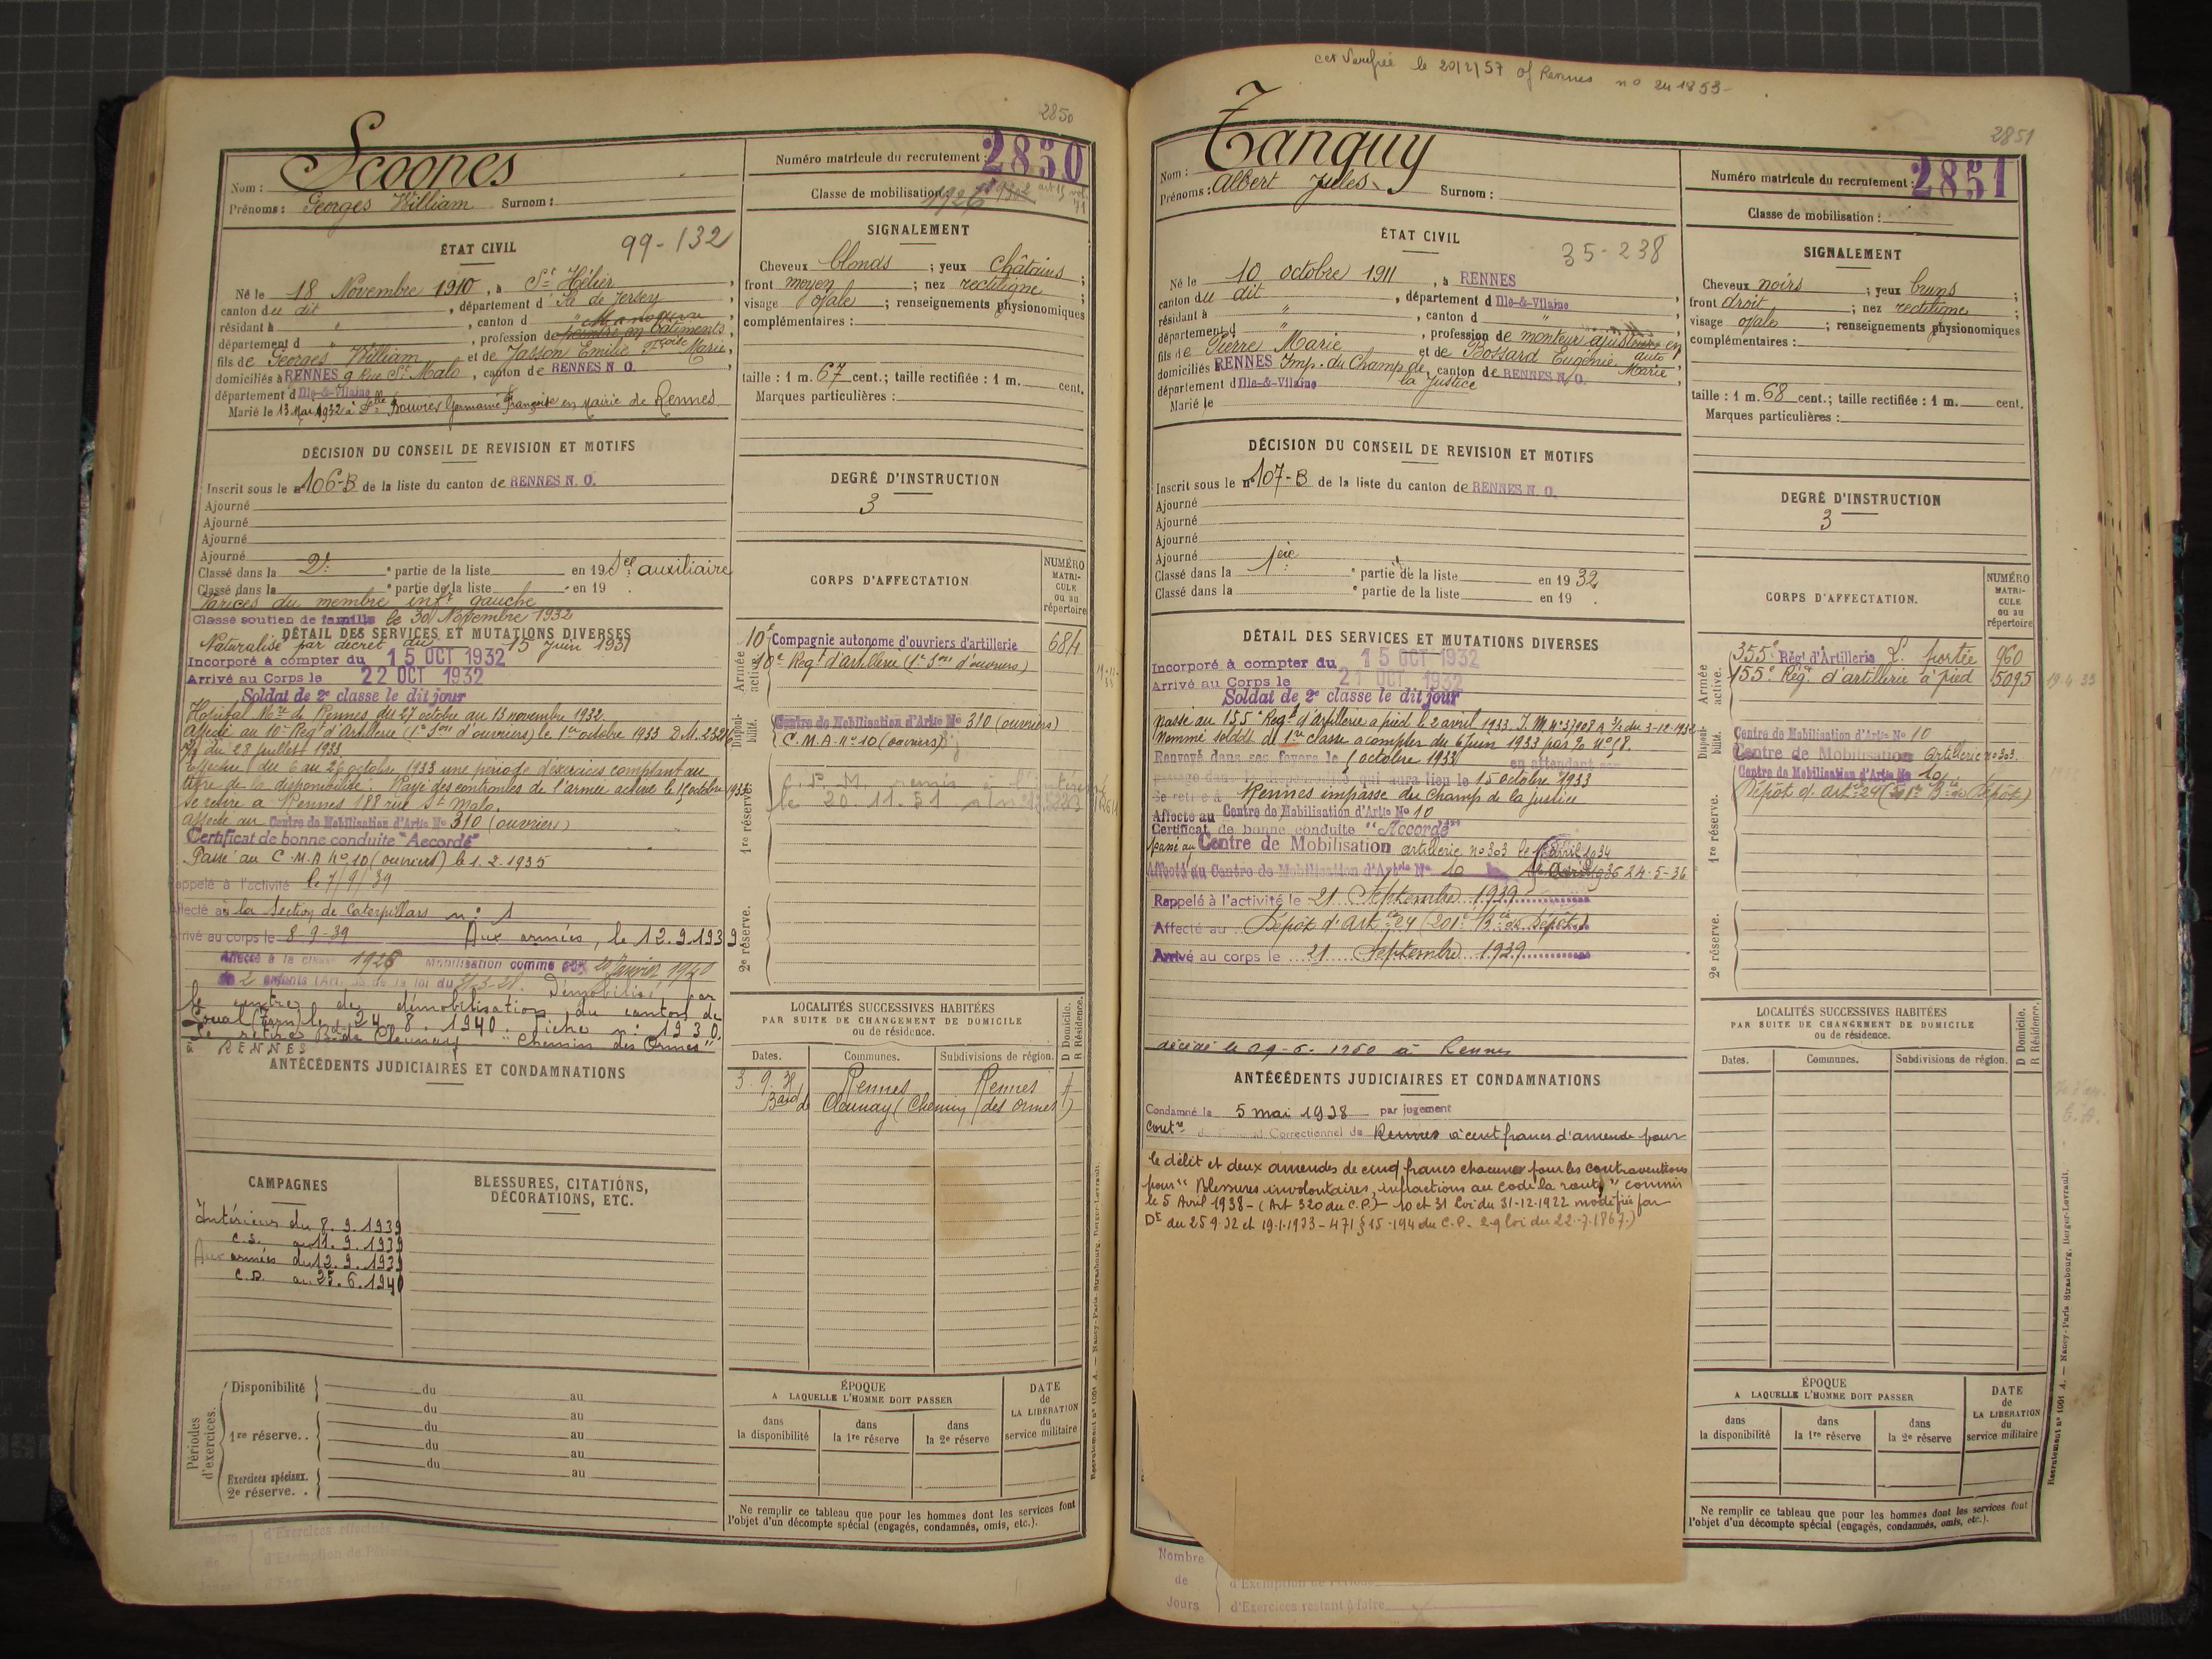 2850
Scoones
Nom :
Prénoms : Georges William Surnom :
Numéro matricule du recrutement : 2850
Classe de mobilisation 1926
ÉTAT CIVIL
99-132
Né le 18 Novembre 1910, à St Hélier,
canton du dit, département d Ile de Jersey,
résidant à ", canton d " Manoeuvre,
département d ", profession de peintre en bâtiments,
fils de Georges William et de Jasson Emilie Fçoise Marie,
domiciliés à RENNES 9 Rue St Malo, canton de RENNES N. O.
département d Ille-&-Vilaine
Marié le 13 Mai 1932 à Delle Bouvier Germaine Françoise en Mairie de Rennes
SIGNALEMENT
Cheveux blonds ; yeux châtains ;
front moyen ; nez rectiligne ;
visage ovale ; renseignements physionomiques
complémentaires :
taille : 1 m. 67 cent.; taille rectifiée : 1 m. cent.
Marques particulières :
DÉCISION DU CONSEIL DE REVISION ET MOTIFS
Inscrit sous le n° 106-B de la liste du canton de RENNES N. O.
Ajourné
Ajourné
Ajourné
Ajourné
Classé dans la 2e partie de la liste en 19 Sce auxiliaire
Classé dans la e partie de la liste en 19 .
Varices du membre infr gauche
Classé soutien de famille le 30 Novembre 1932
DEGRÉ D'INSTRUCTION
3
DÉTAIL DES SERVICES ET MUTATIONS DIVERSES
Naturalisé par décret du 15 Juin 1931
Incorporé à compter du 15 OCT 1932
Arrivé au Corps le 22 OCT 1932
Soldat de 2e classe le dit jour
Hôpital Mre de Rennes du 27 octobre au 13 novembre 1932
Affecté au 10e Regt d'Artillerie (1e Son d'ouvriers) le 1er octobre 1933 D.M. 232
du 28 juillet 1933
Effectue du 6 au 26 octobre 1933 une période d'exercices comptant au
titre de la disponibilité. Rayé des controles de l'armée active le 15 octobre 1933
Se retire à Rennes 188 rue St Malo.
Affecté au Centre de Mobilisation d'Artie No 310 (ouvriers)
Certificat de bonne conduite "Accordé"
Passé au C.M.A No 10 (ouvriers) le 1.2.1935
Rappelé à l'activité le 7/9/39
Affecté à la Section de Caterpillars n° 1
Arrivé au corps le 8-9-39 Aux armées, le 12.9.1939
Affecté à la classe 1926 Mobilisation comme 20 Janvier 1940
de 2 enfants (Art. 58 de la loi du 31-3-28. Démobilisé par
le centre de démobilisation du canton de
(Tarn) le 24.8.1940. Fiche n° 1930.
Se retire Bd de Cleunay "Chemin des Ormes"
à RENNES
CORPS D'AFFECTATION
NUMÉRO MATRICULE ou au répertoire
Armée active.
10e Compagnie autonome d'ouvriers d'artillerie 684
10e Regt d'artillerie (1e Son d'ouvriers)
Disponibilité.
Centre de Mobilisation d'Artie No 310 (ouvriers)
C.M.A. No 10 (ouvriers)
1re réserve.
remis à l'intéressé
le 20.11.51
2e réserve.
LOCALITÉS SUCCESSIVES HABITÉES
PAR SUITE DE CHANGEMENT DE DOMICILE
ou de résidence.
D Domicile. R Résidence.
Dates. Communes. Subdivisions de région.
Rennes Rennes
Bard de Cleunay (Chemin des Ormes)
ANTÉCÉDENTS JUDICIAIRES ET CONDAMNATIONS
CAMPAGNES
BLESSURES, CITATIONS, DÉCORATIONS, ETC.
Intérieur du 8.9.1939
C.S. au 11.9.1939
Aux armées du 12.9.1939
C.D. au 25.6.1940
Périodes d'exercices.
Disponibilité du au
du au
1re réserve. . du au
du au
Exercices spéciaux. du au
2e réserve. .
ÉPOQUE
A LAQUELLE L'HOMME DOIT PASSER
dans la disponibilité
dans la 1re réserve
dans la 2e réserve
DATE de LA LIBÉRATION du service militaire
Ne remplir ce tableau que pour les hommes dont les services font
l'objet d'un décompte spécial (engagés, condamnés, omis, etc.).
Recrutement n° 1001 A. — Nancy-Paris-Strasbourg, Berger-Levrault.
d'Exercices effectués
de d'Exemption de Période
cet Verifiée le 20/2/57 of Rennes no 241853-
2851
Tanguy
Nom :
Prénoms : Albert Jules Surnom :
Numéro matricule du recrutement : 2851
Classe de mobilisation :
ÉTAT CIVIL
35-238
Né le 10 octobre 1911, à RENNES
canton du dit, département d Ille-&-Vilaine
résidant à ", canton d "
département d ", profession de monteur ajusteur en auto
fils de Pierre Marie et de Bossard Eugénie Marie,
domiciliés RENNES Imp. du Champ de la Justice, canton de RENNES N. O.
département d Ille-&-Vilaine
Marié le
SIGNALEMENT
Cheveux noirs ; yeux bruns ;
front droit ; nez rectiligne ;
visage ovale ; renseignements physionomiques
complémentaires :
taille : 1 m. 68 cent.; taille rectifiée : 1 m. cent.
Marques particulières :
DÉCISION DU CONSEIL DE REVISION ET MOTIFS
Inscrit sous le n° 107-B de la liste du canton de RENNES N. O.
Ajourné
Ajourné
Ajourné
Ajourné
Classé dans la 1ère partie de la liste en 1932
Classé dans la e partie de la liste en 19 .
DEGRÉ D'INSTRUCTION
3
DÉTAIL DES SERVICES ET MUTATIONS DIVERSES
Incorporé à compter du 15 OCT 1932
Arrivé au Corps le 21 OCT 1932
Soldat de 2e classe le dit jour
Passé au 155e Regt d'Artillerie à pied le 2 avril 1933. I.M. du 3-12-1932
Nommé soldat de 1re classe à compter du 6 Juin 1933 par
Renvoyé dans ses foyers le octobre 1933 en attendant son
passage dans la disponibilité qui aura lieu le 15 octobre 1933
Se retire à Rennes impasse du Champ de la justice
Affecté au Centre de Mobilisation d'Artie No 10
Certificat de bonne conduite "Accordé"
Passé au Centre de Mobilisation artillerie no 303 le avril 1934
Affecté au Centre de Mobilisation d'Artrie No 10 24-5-36
Rappelé à l'activité le 21 Septembre 1939
Affecté au Dépôt d'Artie 24 (201e Bie de Dépôt)
Arrivé au corps le 21 Septembre 1939
décédé le 09-6-1960 à Rennes
CORPS D'AFFECTATION.
NUMÉRO MATRICULE ou au répertoire
Armée active.
355e Régt d'Artillerie L. portée 960
155e Régt d'artillerie à pied 5095 19-4-33
Disponibilité.
Centre de Mobilisation d'Artie No 10
Centre de Mobilisation Artillerie no 303.
Centre de Mobilisation d'Artie No 10
Dépôt d'Artie 24 (Bie de Dépôt)
1re réserve.
2e réserve.
LOCALITÉS SUCCESSIVES HABITÉES
PAR SUITE DE CHANGEMENT DE DOMICILE
ou de résidence.
D Domicile. R Résidence.
Dates. Communes. Subdivisions de région.
ANTÉCÉDENTS JUDICIAIRES ET CONDAMNATIONS
Condamné le 5 mai 1938 par jugement
contre du Tribunal Correctionnel de Rennes à cent francs d'amende pour
le délit et deux amendes de cinq francs chacune pour les contraventions
pour "Blessures involontaires, infractions au code la route" commis
le 5 Avril 1938 - (Art 320 du C.P.) - 10 et 31 Loi du 31-12-1922 modifiée par
Dt du 25.9.32 et 19.1.1933 - 471 § 15 - 194 du C.P. - 2-9 loi du 22.7.1867.)
ÉPOQUE
A LAQUELLE L'HOMME DOIT PASSER
dans la disponibilité
dans la 1re réserve
dans la 2e réserve
DATE de LA LIBÉRATION du service militaire
Ne remplir ce tableau que pour les hommes dont les services font
l'objet d'un décompte spécial (engagés, condamnés, omis, etc.).
Recrutement n° 1001 A. — Nancy-Paris-Strasbourg, Berger-Levrault.
Nombre
de d'Exemption de Période
Jours d'Exercices restant à faire